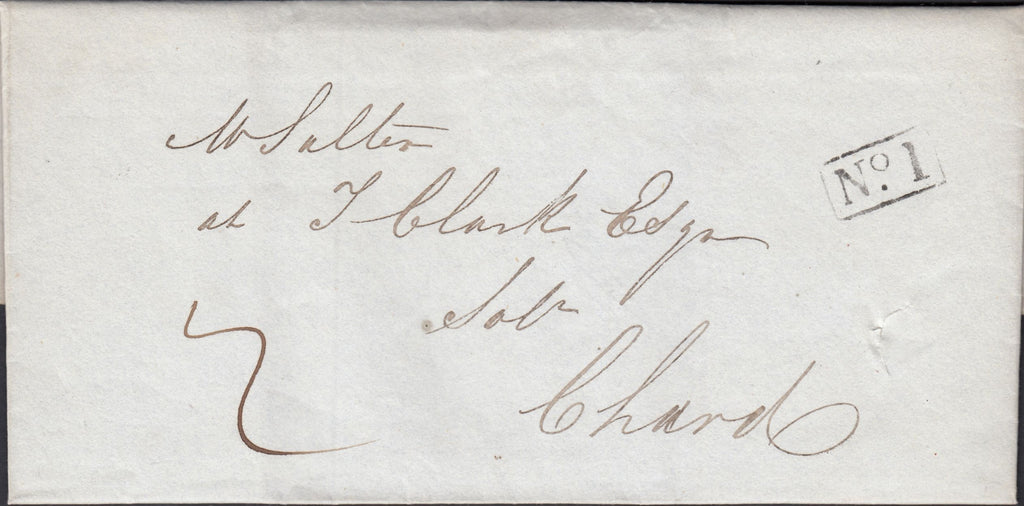 Mr Salter
No. 1
at T Clark Esqr
Solr
Chard